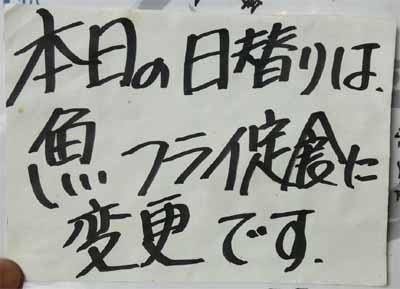 本日の日替りは、
魚フライ定食に
変更です.